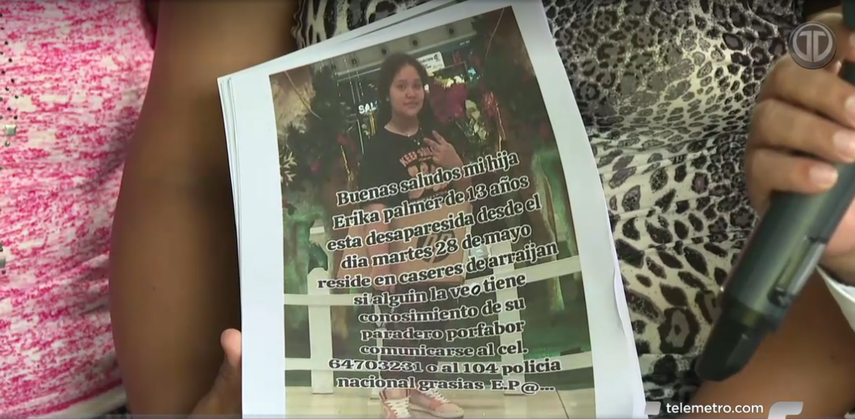 Buenas saludos mi hija
Erika palmer de 13 años
esta desaparesida desde el
dia martes 28 de mayo
reside en caseres de arraijan
si alguin la veo tiene
conosimiento de su
paradero porfabor
comunicarse al cel.
64703231 o al 104 policia
nacional grasias E.P@...
telemetro.com